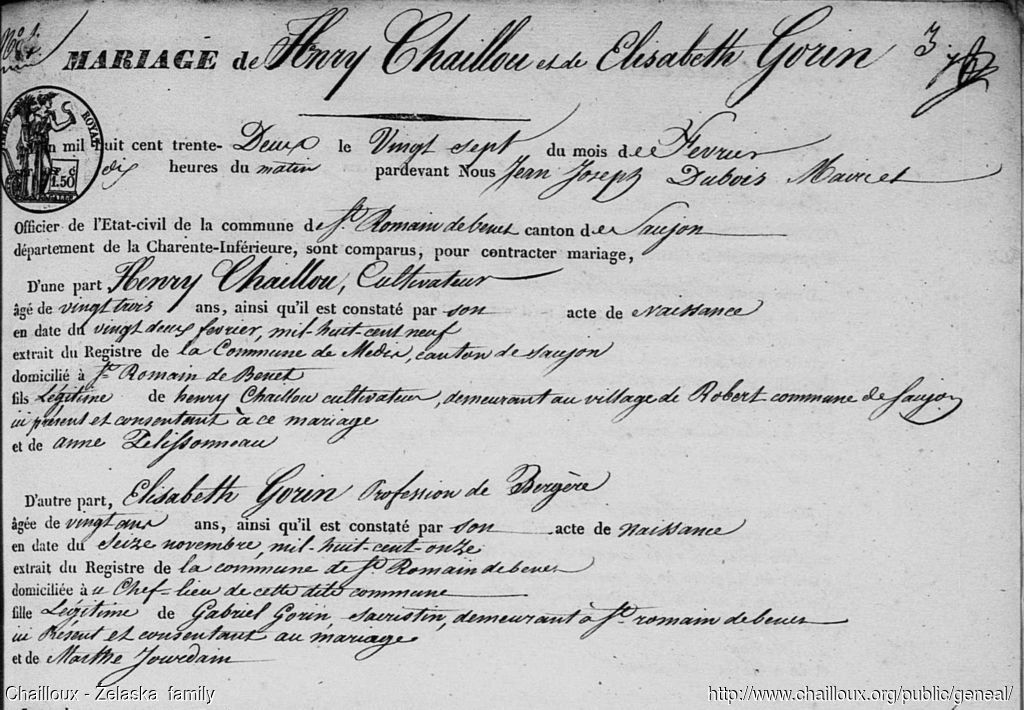 MARIAGE de Henry Chaillou et de Elisabeth Gorin 3
mil huit cent trente-Deux le Vingt sept du mois de Fevrier
dix heures du matin pardevant Nous Jean Joseph Dubois Maire et
Officier de l'Etat-civil de la commune de St. Romain de benet canton de Saujon
département de la Charente-Inférieure, sont comparus, pour contracter mariage,
D'une part, Henry Chaillou, Cultivateur
âgé de vingt trois ans, ainsi qu'il est constaté par son acte de Naissance
en date du vingt deux fevrier, mil-huit-cent neuf
extrait du Registre de la Commune de Medis, canton de saujon
domicilié à St. Romain de Benet
fils Légitime de henry Chaillou cultivateur, demeurant au village de Robert commune de Saujon
ici présent et consentant à ce mariage
et de anne Pelissonneau
D'autre part, Elisabeth Gorin Profession de Bergère
âgée de vingt ans ans, ainsi qu'il est constaté par son acte de Naissance
en date du seize novembre, mil-huit-cent-onze
extrait du Registre de la commune de St. Romain de benet
domiciliée à Chef-lieu de cette dite commune
fille Légitime de Gabriel Gorin, sacristin, demeurant à St. romain de benet
ici Présent et consentant au mariage
et de Marthe Jourdain
ROYAL
1.50
Chailloux - Zelaska family
http://www.chailloux.org/public/geneal/